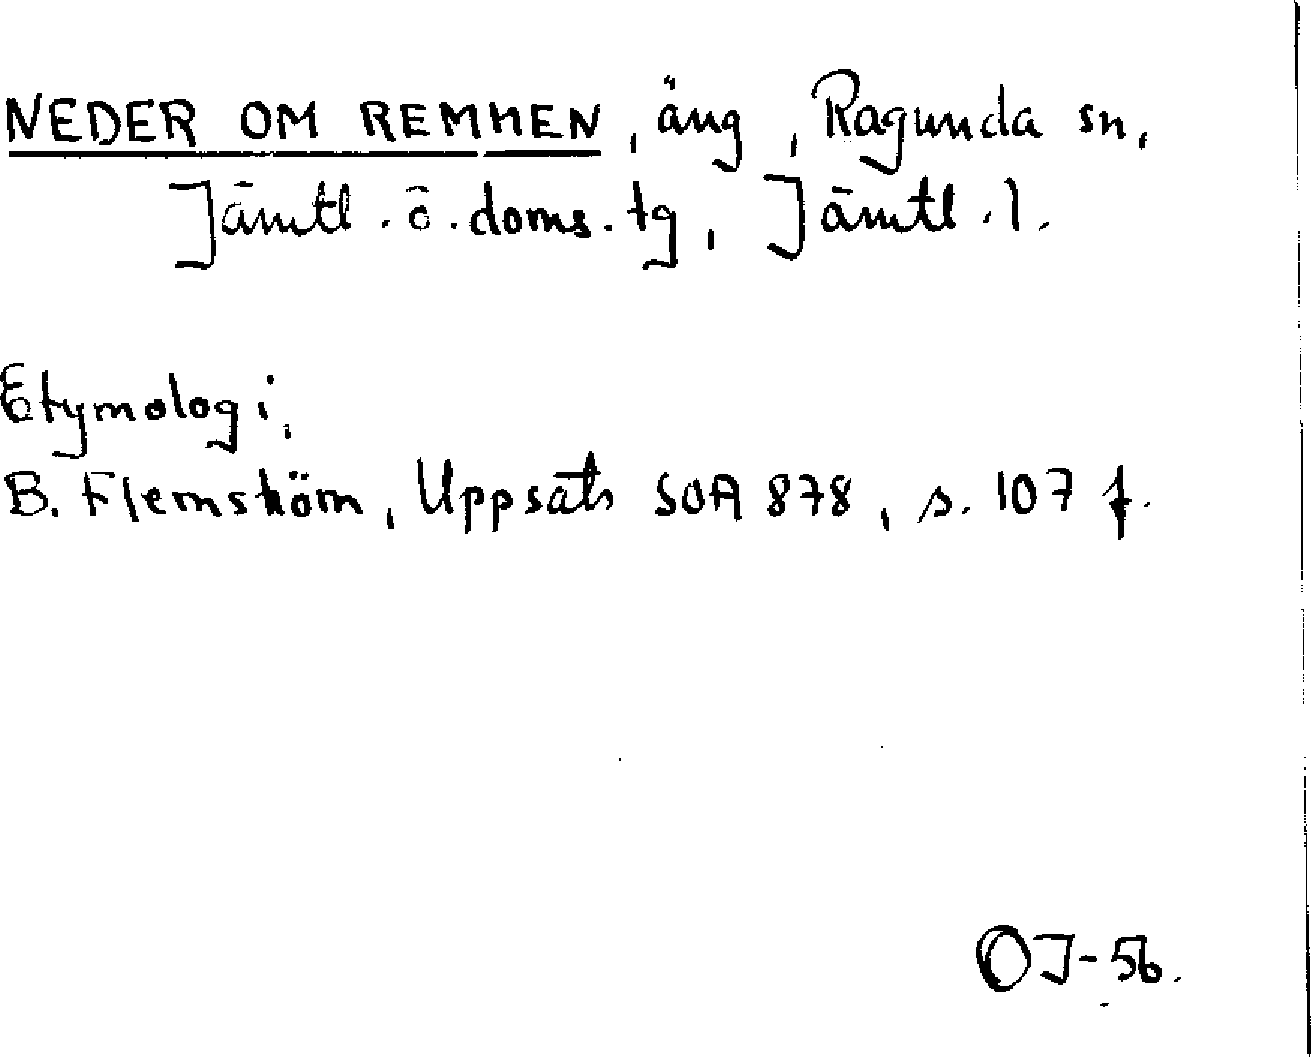 NEDER OM REMMEN, äng, Ragunda sn,
Jämtl. ö. doms. tg, Jämtl. l.
Etymologi,
B. Flemström, Uppsats SOA 878, s. 107 f.
OJ-56.